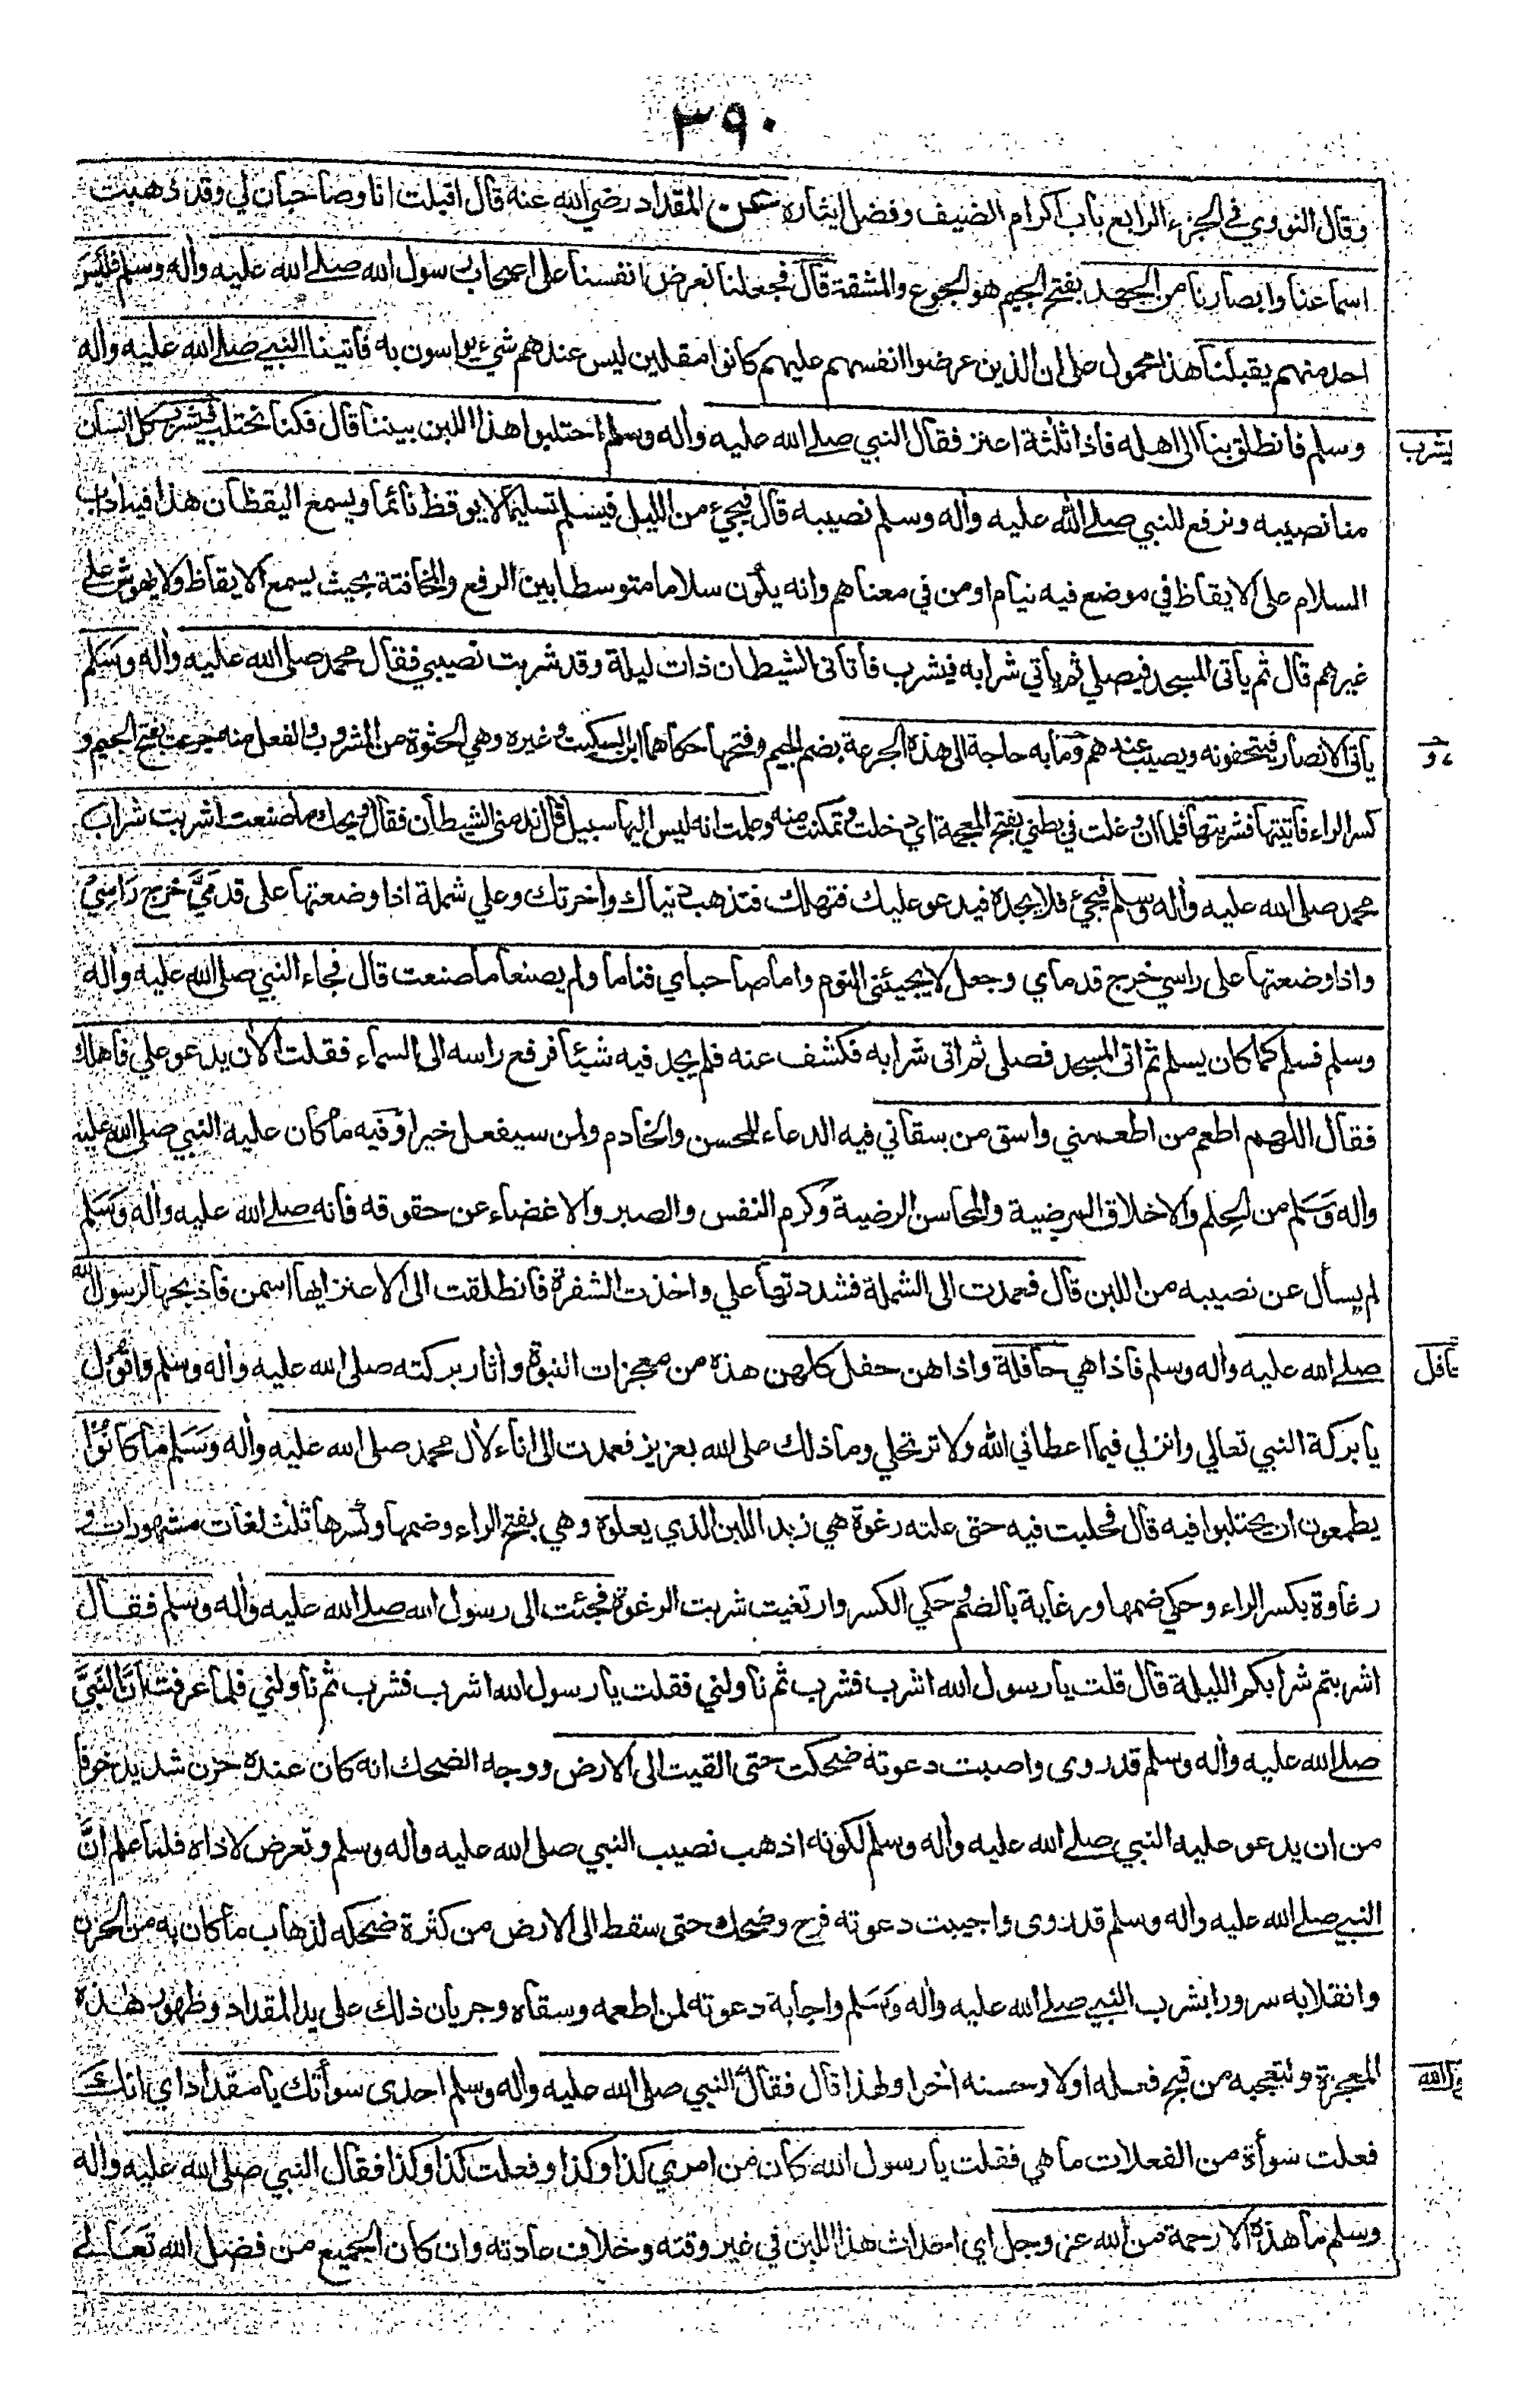 ٣٩٠
وقال النووي في الجزء الرابع باب اكرام الضيف وفضل ايثاره عن المقداد رضي الله عنه قال اقبلت انا وصاحبان لي وقد ذهبت
اسماعنا وابصارنا من الجهد بفتح الجيم هو الجوع والمشقة قال فجعلنا نعرض انفسنا على اصحاب رسول الله صلى الله عليه وأله وسلم فليس
احد منهم يقبلنا هذا محمول على ان الذين عرضوا انفسهم عليهم كانوا مقلين ليس عندهم شيء يواسون به فاتينا النبي صلى الله عليه وأله
وسلم فانطلق بنا الى اهله فاذا ثلثة اعنز فقال النبي صلى الله عليه وأله وسلم احتلبوا هذا اللبن بيننا قال فكنا نحتلب فيشرب كل انسان
يشرب
منا نصيبه ونرفع للنبي صلى الله عليه وأله وسلم نصيبه قال فيجيء من الليل فيسلم تسليما لا يوقظ نائما ويسمع اليقظان هذا فيه اداب
السلام على الايقاظ في موضع فيه نيام او من في معناهم وانه يكون سلاما متوسطا بين الرفع والمخافتة بحيث يسمع الايقاظ ولا يهوش على
غيرهم قال ثم يأتى المسجد فيصلي ثم يأتي شرابه فيشرب فأتانى الشيطان ذات ليلة وقد شربت نصيبي فقال محمد صلى الله عليه وأله وسلم
يأتى الانصار فيتحفونه ويصيب عندهم وما به حاجة الى هذه الجرعة بضم الجيم وفتحها حكاهما ابن السكيت وغيره وهي الحثوة من المشروب والفعل منه جرعت بفتح الجيم و
كسر الراء فأتيتها فشربتها فلما ان وغلت في بطني بفتح المعجمة اي دخلت وتمكنت منه وعلمت انه ليس اليها سبيل قال ندمنى الشيطان فقال ويحك ما صنعت اشربت شراب
محمد صلى الله عليه وأله وسلم فيجيء فلا يجده فيدعو عليك فتهلك فتذهب دنياك وأخرتك وعلي شملة اذا وضعتها على قدمي خرج راسي
واذا وضعتها على راسي خرج قدماي وجعل لا يجيئنى النوم واما صاحباي فناما ولم يصنعا ما صنعت قال فجاء النبي صلى الله عليه وأله
وسلم فسلم كما كان يسلم ثم اتى المسجد فصلى ثم اتى شرابه فكشف عنه فلم يجد فيه شيئا فرفع راسه الى السماء فقلت الأن يدعو علي فاهلك
فقال اللهم اطعم من اطعمني واسق من سقاني فيه الدعاء للمحسن والخادم ولمن سيفعل خيرا وفيه ما كان عليه النبي صلى الله عليه
وأله وسلم من الحلم والاخلاق المرضية والمحاسن الرضية وكرم النفس والصبر والاغضاء عن حقوقه فانه صلى الله عليه وأله وسلم
لم يسأل عن نصيبه من اللبن قال فعمدت الى الشملة فشددتها علي واخذت الشفرة فانطلقت الى الاعنز ايها اسمن فاذبحها لرسول الله
صلى الله عليه وأله وسلم فاذا هي حافلة واذا هن حفل كلهن هذه من معجزات النبوة وأثار بركته صلى الله عليه وأله وسلم واقول
يا بركة النبي تعالي وانزلي فيما اعطاني الله ولا ترتحلي وما ذلك على الله بعزيز فعمدت الى اناء لأل محمد صلى الله عليه وأله وسلم ما كانوا
يطمعون ان يحتلبوا فيه قال فحلبت فيه حتى علته رغوة هي زبد اللبن الذي يعلوه وهي بفتح الراء وضمها وكسرها ثلث لغات مشهورات و
رغاوة بكسر الراء وحكي ضمها ورغاية بالضم وحكي الكسر وارتغيت شربت الرغوة فجئت الى رسول الله صلى الله عليه وأله وسلم فقال
اشربتم شرابكم الليلة قال قلت يا رسول الله اشرب فشرب ثم ناولني فقلت يا رسول الله اشرب فشرب ثم ناولني فلما عرفت ان النبي
صلى الله عليه وأله وسلم قد روى واصبت دعوته ضحكت حتى القيت الى الارض ووجه الضحك انه كان عنده حزن شديد خوفا
من ان يدعو عليه النبي صلى الله عليه وأله وسلم لكونه اذهب نصيب النبي صلى الله عليه وأله وسلم وتعرض لاذاه فلما علم ان
النبي صلى الله عليه وأله وسلم قد روى واجيبت دعوته فرح وضحك حتى سقط الى الارض من كثرة ضحكه لذهاب ما كان به من الحزن
وانقلابه سرورا بشرب النبي صلى الله عليه وأله وسلم واجابة دعوته لمن اطعمه وسقاه وجريان ذلك على يد المقداد وظهور هذه
المعجزة وتعجبه من قبح فعله اولا وحسنه أخرا ولهذا قال فقال النبي صلى الله عليه وأله وسلم احدى سوأتك يا مقداد اي انك
فعلت سوأة من الفعلات ما هي فقلت يا رسول الله كان من امري كذا وكذا وفعلت كذا وكذا فقال النبي صلى الله عليه وأله
وسلم ما هذه الا رحمة من الله عز وجل اي احداث هذا اللبن في غير وقته وخلاف عادته وان كان الجميع من فضل الله تعالى